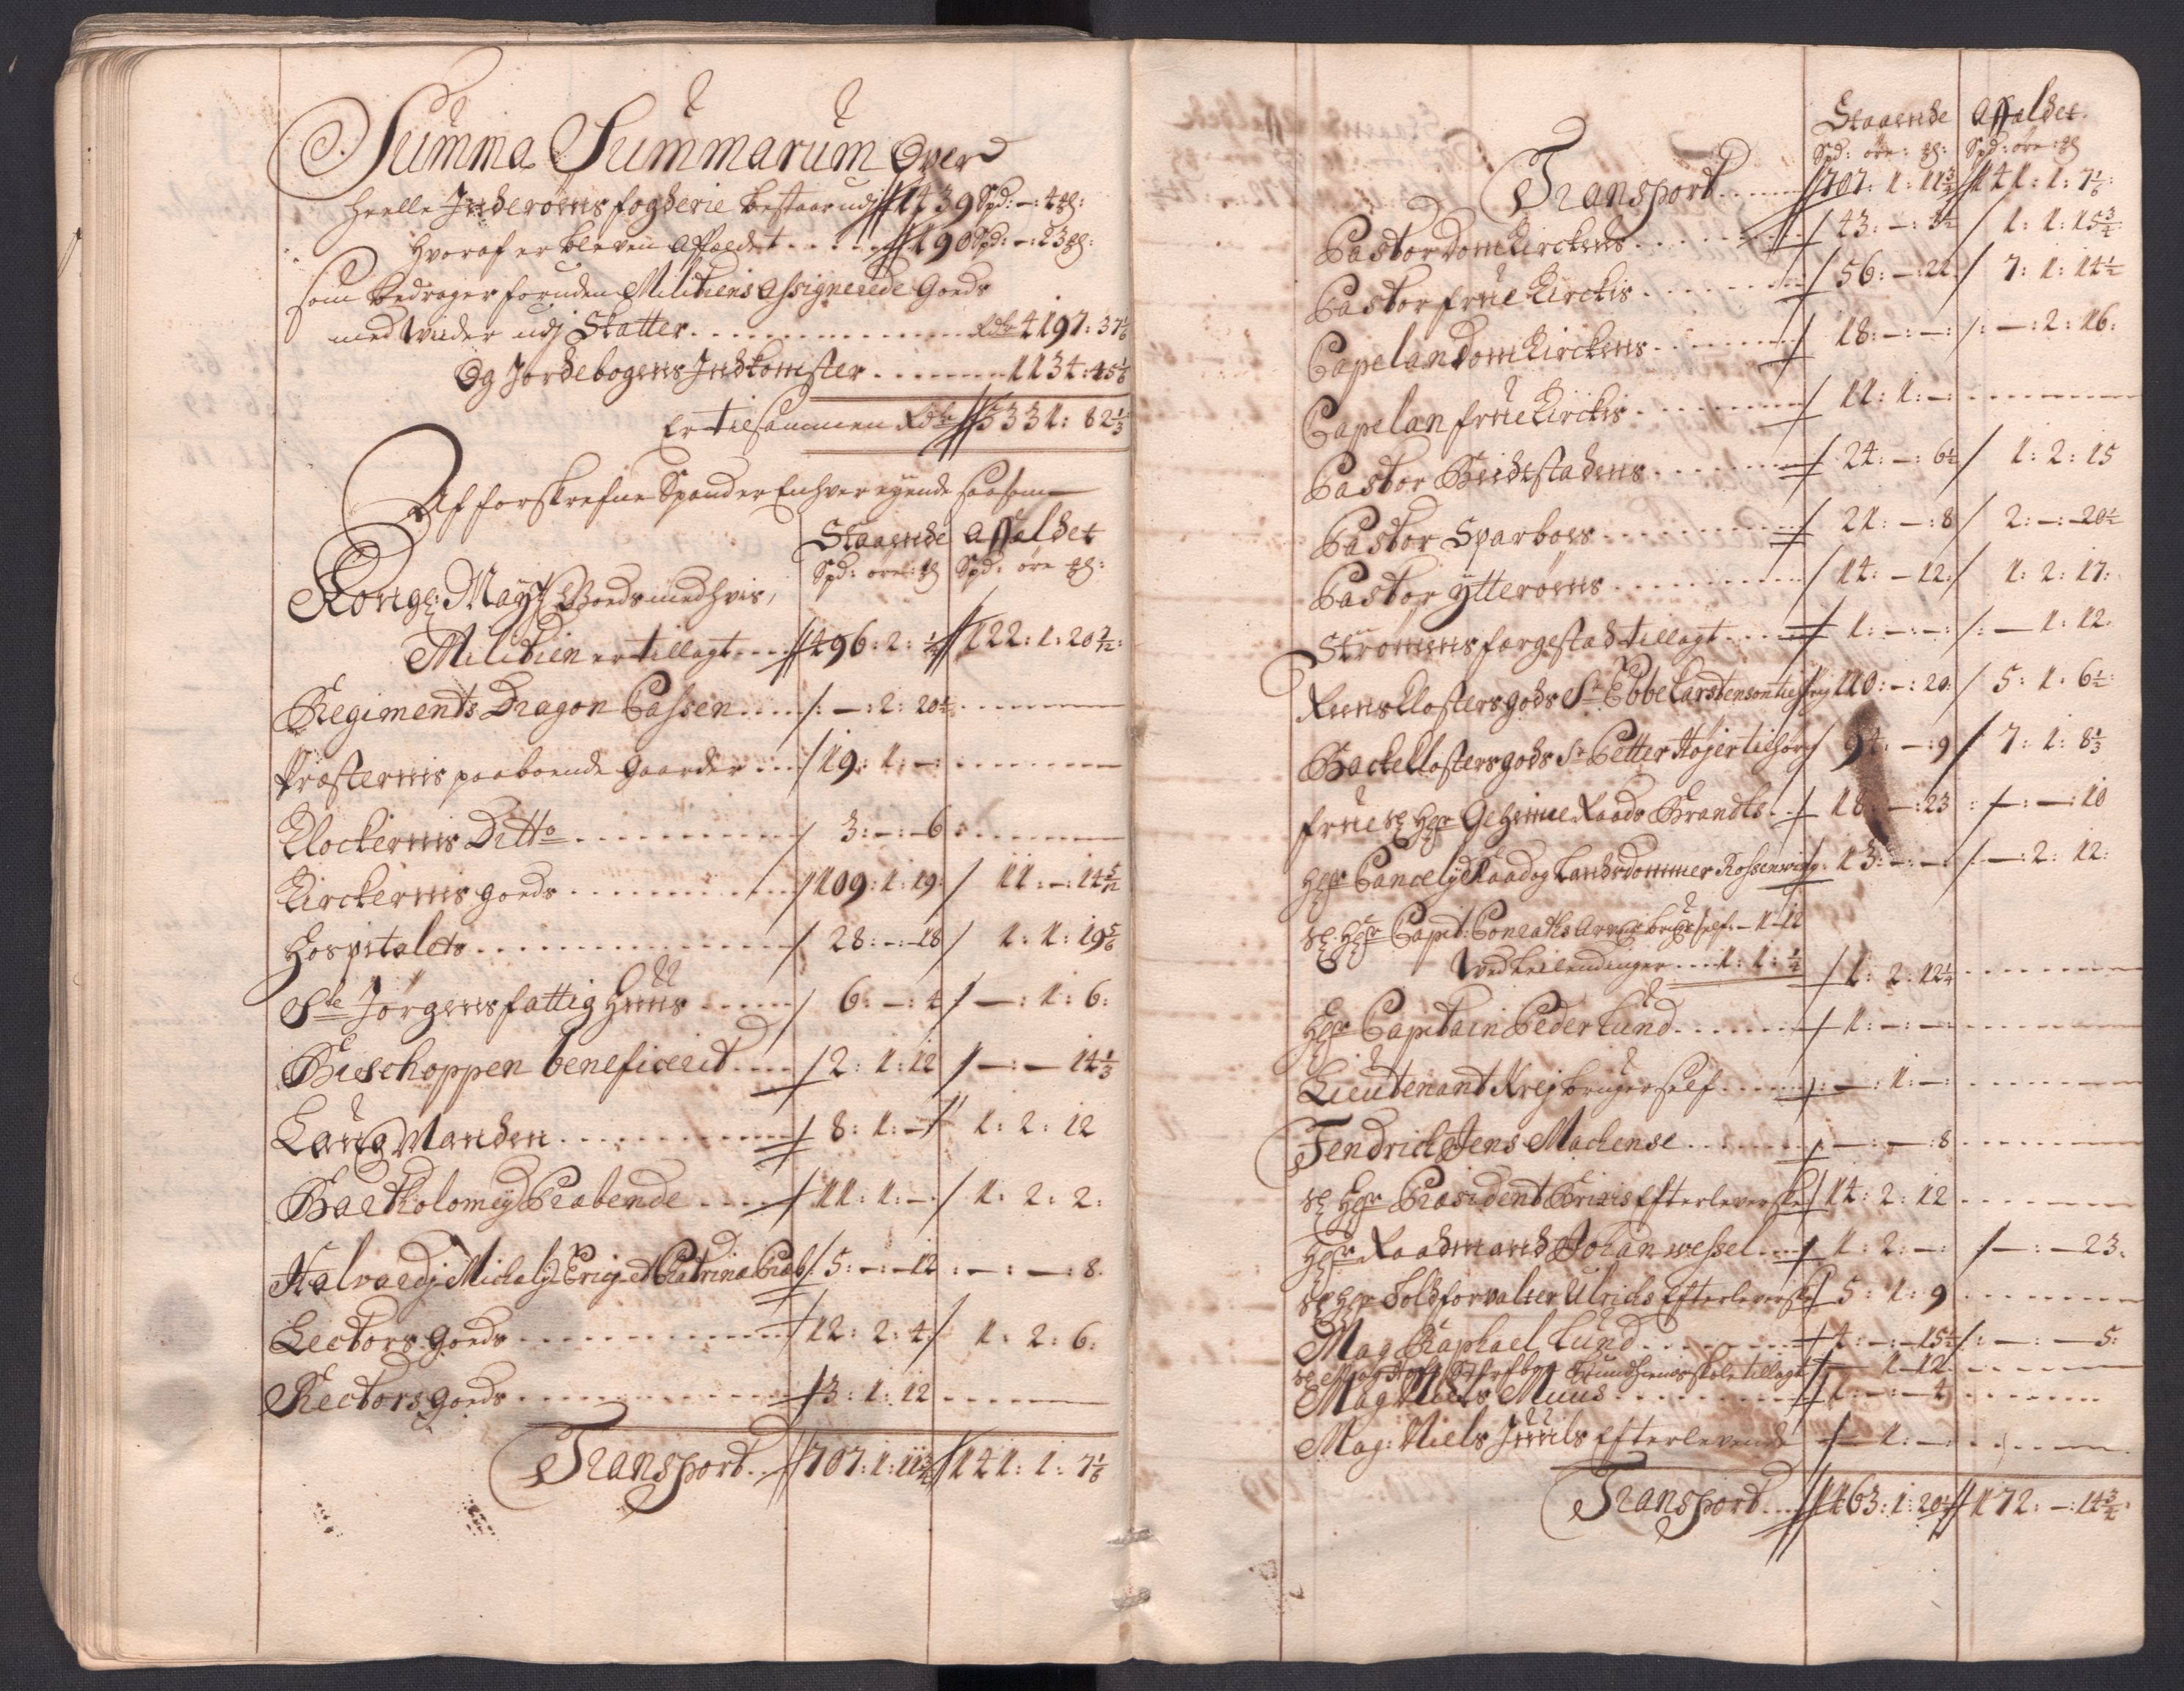 Summa Summarum Over
Heelle Inderøens fogderie bestaar udj 1439 Spd: –: 4 ꝳl:
Hvoraf er bleven affældet . . . . . 190 Spd: –: 23 ꝳl:
som bedrager foruden Militiens Assignerede Goeds
med Vnder udj Skatter . . . . . . . . . . Rdr 4197: 37 1/6
Og Jordebogens Indkomster . . . . . . 1134: 45 1/6
Er tilsammen Rdr 5331: 82 1/3
Af forskrefne Spander Enhver eyende saasom
Staaende | affaldet
Spd: øre: ꝳl | Spd: øre ꝳl:
Kongl: Mayts Goeds med hvis,
Militien er tillagt . . . . 496: 2: 1/4 | 122: 1: 20 7/12:
Regiments Dragon Cassen . . . . –: 2: 20 . . . . . .
Præsternis paaboende Gaarder . . . 19: 1: –: . . . . . .
Clockernis Ditto . . . . . . . . 3: –: –6 . . . . . .
Kirckernis goeds . . . . . . . . 109: 1: 19: | 11: –: 14 5/12
Hospitalets . . . . . . . . . . 28: –: –18 | 1: 1: 19 5/6
Ste Jørgens fattig Huus . . . . . 6: –: 4 | –: 1: 6:
Bischoppen beneficerit . . . . 2: 1: 12 | –: – 14 1/3
LaugManden . . . . . . . . . 8: 1: – | 1: 2: 12
Bartholomej Præbende . . . . 11: 1: – | 1: 2: 2:
Halvardj Michaelj Erici et Catrina Præb: 5: –: –12 | –: –: 8.
Lectors goeds . . . . . . . . . 12: 2: 4 | 1: 2: 6:
Rectors goeds . . . . . . . . . 13: 1: 12 . . . . . .
Transport . . 707: 1: 11 3/4 | 141: 1: 7 1/6
Staaende | affaldet.
Spd: øre: ꝳl: | Spd: øre: ꝳl
Transport . . . . 707: 1: 11 3/4 | 141: 1: 7 1/6:
Pastor Domkirckens . . . . . . 43: –: 3 1/2 | 1: 1: 15 3/4
Pastor frue Kirckis . . . . . . 56: –: 22. | 7: 1: 14 1/2
Capelan Domkirckens . . . . . . 18: –: –: | –: 2: 16:
Capelan frue Kirckis . . . . . . 11: 1: –: . . . . . .
Pastor Beidstadens . . . . . . 24: –: 6 1/2 | 1: 2: 15
Pastor Sparboes . . . . . . . . 21: –: 8 | 2: –: –20 1/2
Pastor ytterøens . . . . . . . 14: – 12: | 1: 2: 17:
Strømmens færgestad tillagt . . . 1: –: –: | – 1: 12.
Reens Closters gods Sr Ebbe Carstensen tilhørig 110: –: 20: | 5: 1: 6 1/2:
Backe Closters gods Sr Petter Højer tilhørig 94: –: 9 | 7: 1: 8 1/3
frue sl Hr Geheime Raads Brandts . . 18: –: 23 | –: –: 10
Hr Cancelij Raad og Landsdommer Rossenvinge 13: –: –: | –: 2: 12:
sl: Hr Capit: Conraths Arvinger bruger self: – 1–12
Ved Leilendinger . . . 1: 1: 1/4 | 1: 2: 12 1/4 . . . . . .
Hr Capitain Peder Lund . . . . . . 1: –: –: . . . . . .
Lieutenant Krej bruger self . . . . –: 1: –: . . . . . .
Fendrich Jens Machense . . . . . . –: –: 8 . . . . . .
sl Hr Præsident Brixis Efterleverske 14: 2: 12 . . . . .
Hr Raadmand Johan wessel . . . . 1: 2: –: | –: –23:
sl Hr Toldforvalter Ulrichs Efterleverske 5: 1: 9 . . . . . .
Mag. Raphael Lund . . . . . . 4: –: –15 1/2 | –: –5:
skole tillagt – 1–12 . . . . .
Mag Niels Muus . . . . . . . . 1: –: –4 . . . . . .
Mag: Niels Juuls Efterlevende – 1: –: . . . . . .
Transport . . . 1163: 1: 20 1/4 | 172: –: 14 3/4: